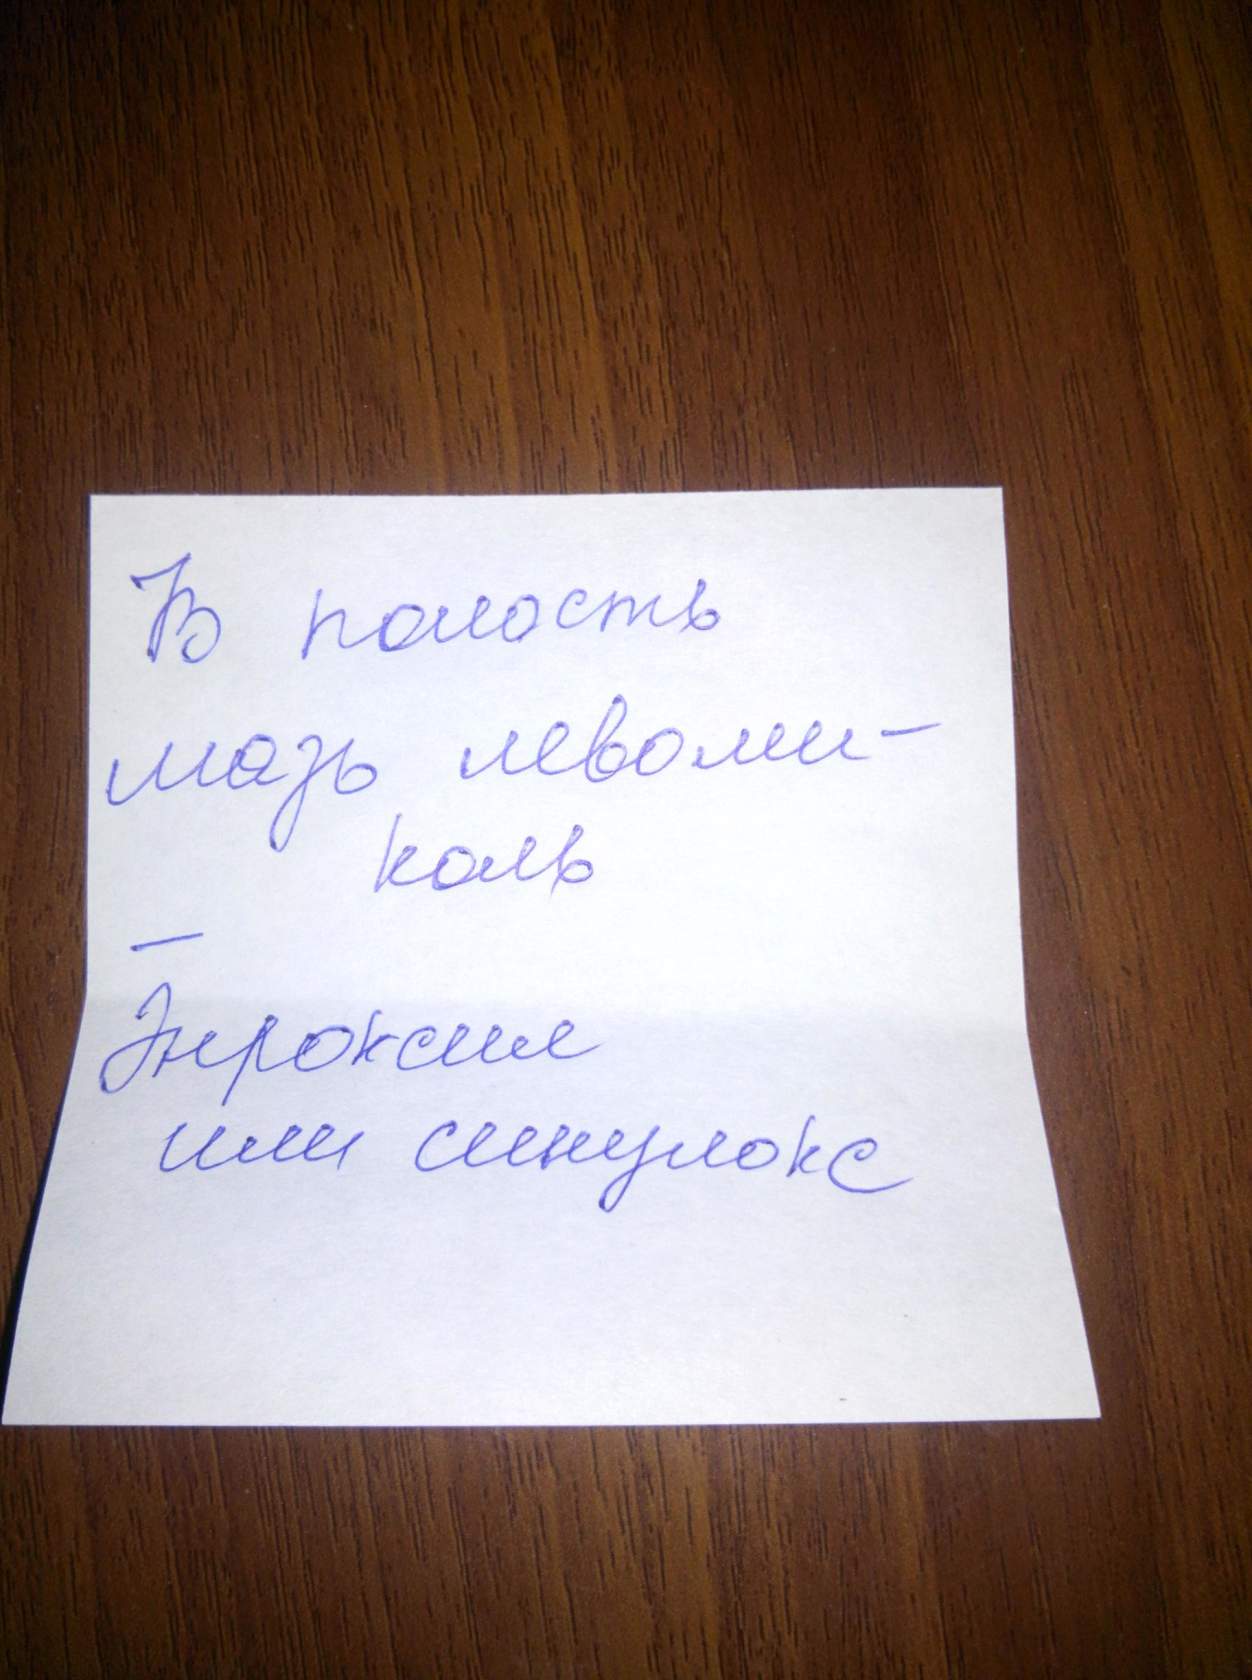 В полость
мазь левоми-
коль
—
Энроксил
или синулокс